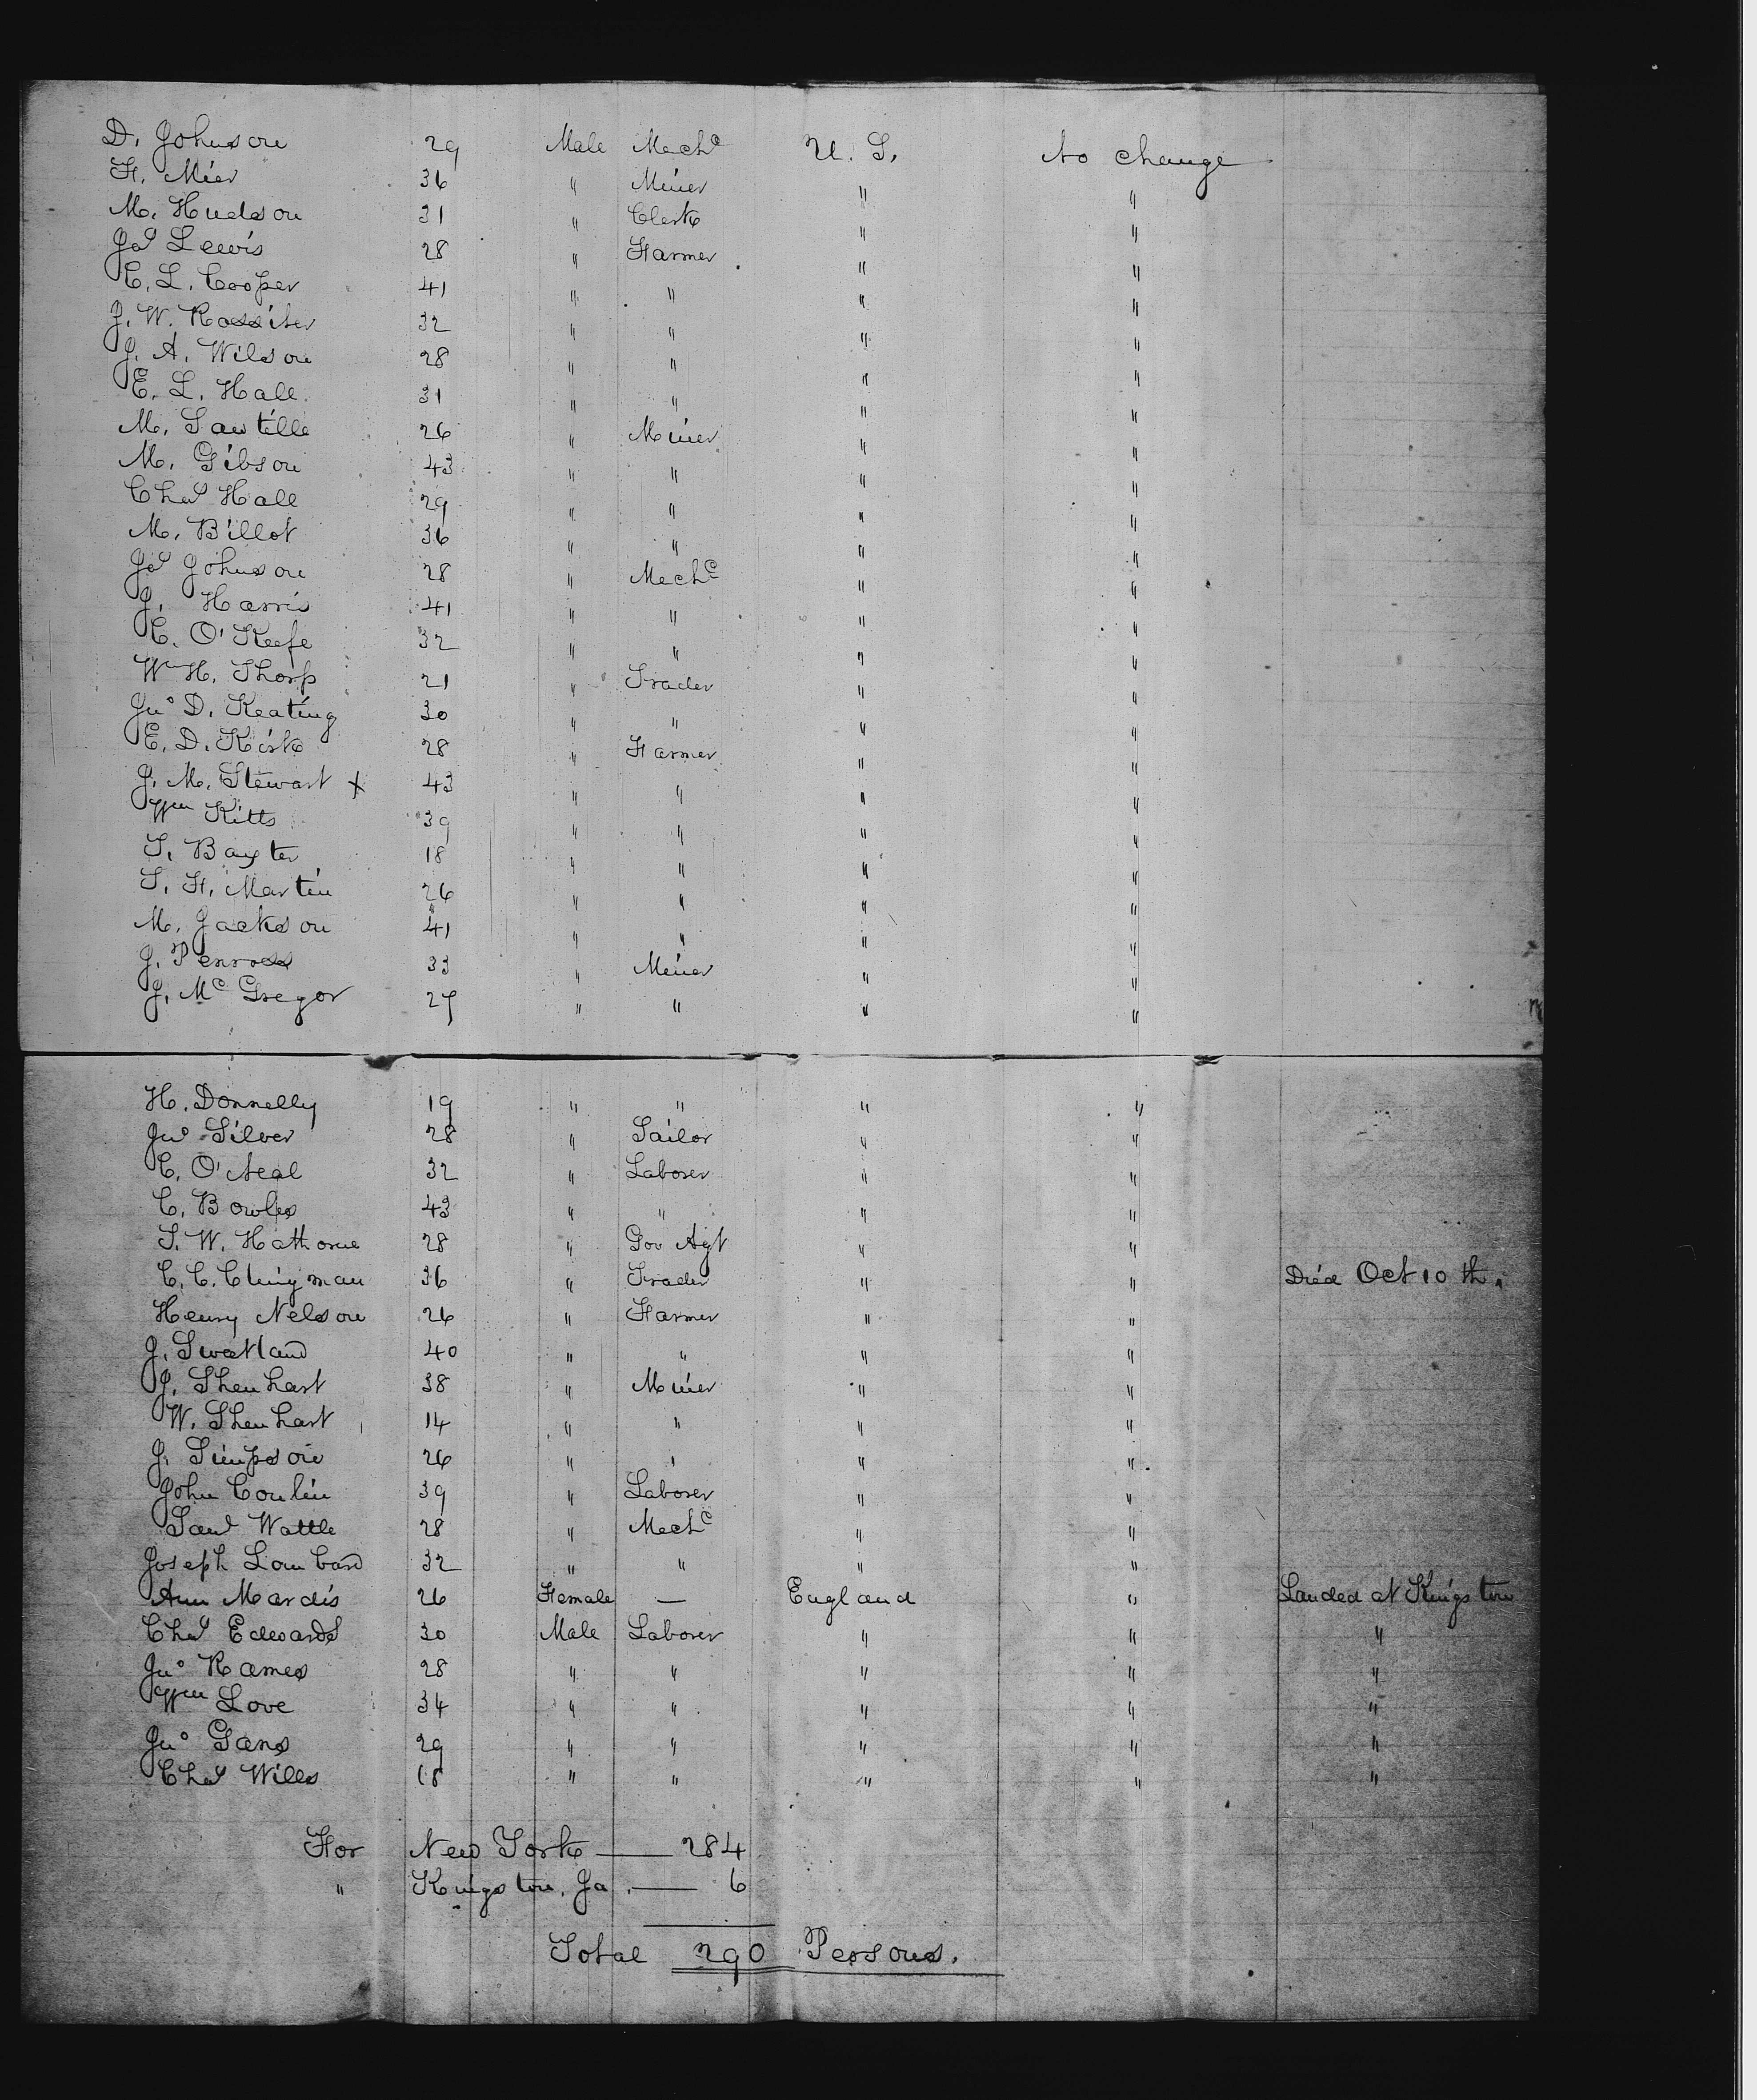 D. Johnson 29 Male Mech^c U. S. No change
F. Mier 36 " Miner " "
M. Hudson 31 " Clerk " "
Ja^s Lewis 28 " Farmer " "
C. L. Cooper 41 " " " "
J. W. Rossiter 32 " " " "
J. A. Wilson 28 " " " "
E. L. Hall 31 " " " "
M. Sawtelle 26 " Miner " "
M. Gibson 43 " " " "
Cha^s Hall 29 " " " "
M. Billot 36 " " " "
Ja^s Johnson 28 " Mech^c " "
J. Harris 41 " " " "
C. O'Keefe 32 " " " "
W^m H. Thorp 21 " Trader " "
Jn^o D. Keating 30 " " " "
E. D. Kirk 28 " Farmer " "
J. M. Stewart x 43 " " " "
W^m Kitts 39 " " " "
T. Baxter 18 " " " "
T. F. Martin 26 " " " "
M. Jackson 41 " " " "
J. Penross 33 " Miner " "
J. M^c Gregor 27 " " " "
H. Donnelly 19 " " " "
Jn^o Silver 28 " Sailor " "
C. O'Neal 32 " Laborer " "
C. Bowles 43 " " " "
S. W. Hathorne 28 " Gov Agt " "
C. C. Clingman 36 " Trader " " Died Oct 10 th.
Henry Nelson 26 " Farmer " "
J. Swetland 40 " " " "
J. Shenhart 38 " Miner " "
W. Shenhart 14 " " " "
J. Simpson 26 " " " "
John Conlin 39 " Laborer " "
Sam^l Wattle 28 " Mech^c " "
Joseph Lombard 32 " " " "
Ann Mardis 26 Female — England " Landed at Kingston
Cha^s Edwards 30 Male Laborer " " "
Jn^o Rames 28 " " " " "
W^m Love 34 " " " " "
Jn^o Gans 29 " " " " "
Cha^s Wills 18 " " " " "
For New York — 284
" Kingston, Ja. — 6
Total 290 Persons.